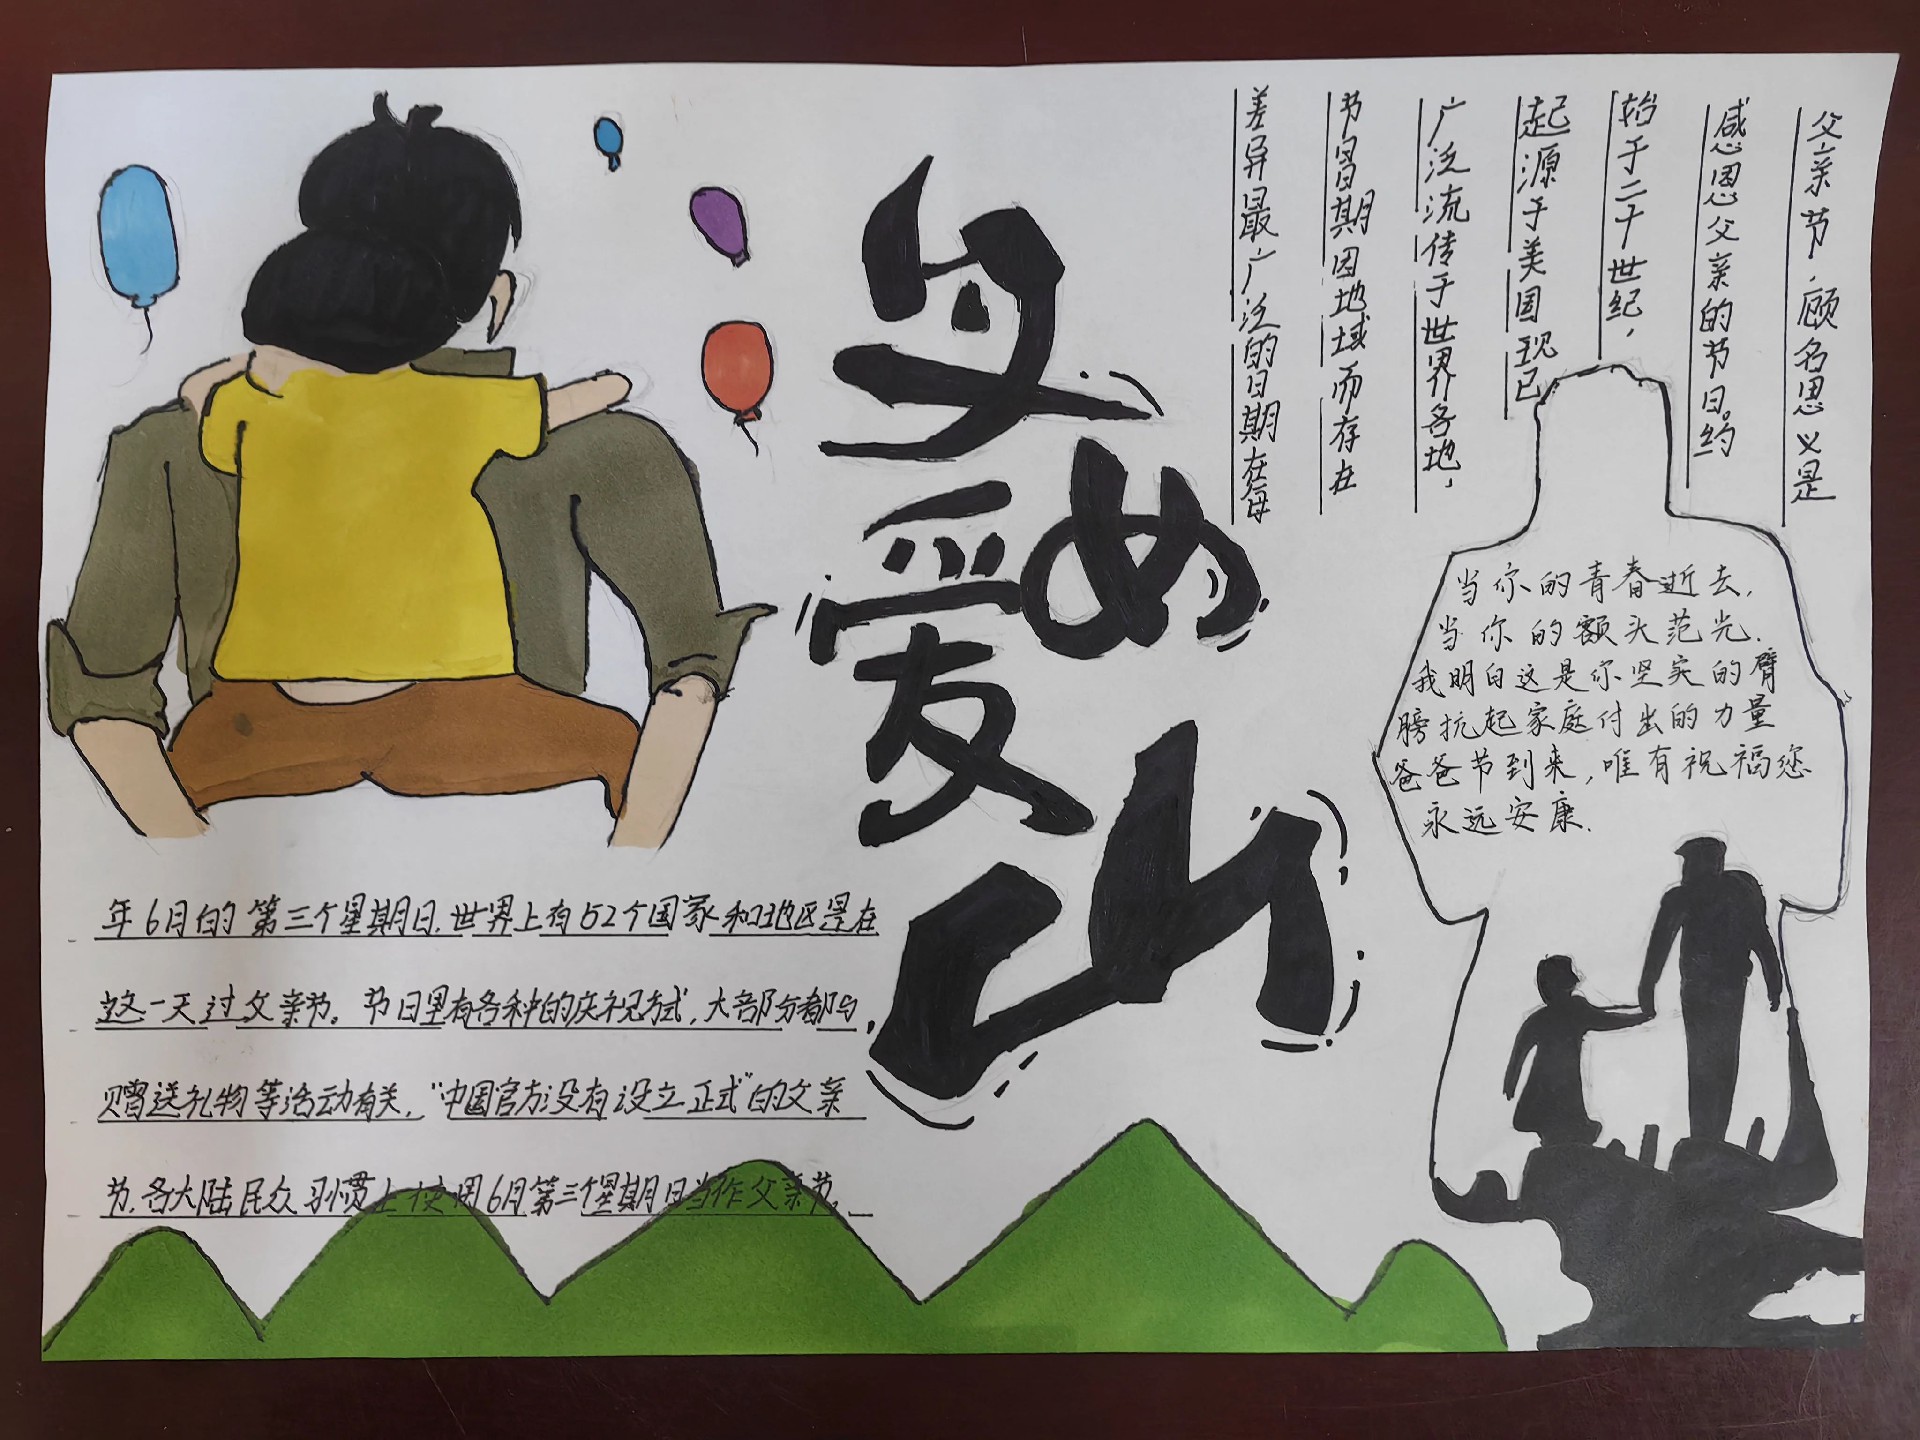 父爱如山
父亲节,顾名思义是
感恩父亲的节日。约
始于二十世纪,
起源于美国现已
广泛流传于世界各地,
节日日期因地域而存在
差异最广泛的日期在每
年6月的第三个星期日.世界上有52个国家和地区是在
这一天过父亲节。节日里有各种的庆祝方式,大部分都与
赠送礼物等活动有关,“中国官方没有设立正式”的父亲
节.各大陆民众习惯上使用6月第三个星期日当作父亲节。
当你的青春逝去,
当你的额头范光.
我明白这是你坚实的臂
膀抗起家庭付出的力量
爸爸节到来,唯有祝福您
永远安康.